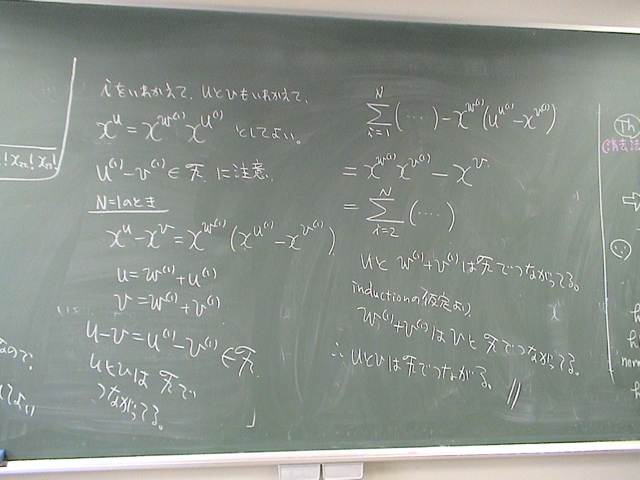 !x₁₂! x₁₂!
iをいれかえて、uとvもいれかえて、
x^u = x^{w^{(1)}} x^{u^{(1)}} としてよい。
u^{(1)} - v^{(1)} ∈ 𝓕 に注意
N=1のとき
x^u - x^v = x^{w^{(1)}} (x^{u^{(1)}} - x^{v^{(1)}})
u = w^{(1)} + u^{(1)}
v = w^{(1)} + v^{(1)}
u - v = u^{(1)} - v^{(1)} ∈ 𝓕.
uとvは 𝓕で
つながってる。
∑_{i=1}^{N} (⋯) - x^{w^{(1)}} (u^{u^{(1)}} - x^{v^{(1)}})
= x^{w^{(1)}} x^{v^{(1)}} - x^v
= ∑_{i=2}^{N} (⋯)
uと w^{(1)} + v^{(1)} は 𝓕でつながってる。
inductionの仮定より
w^{(1)} + v^{(1)} はvと 𝓕でつながってる。
∴ uとvは 𝓕でつながる。 //
Th
(消去法
⇨